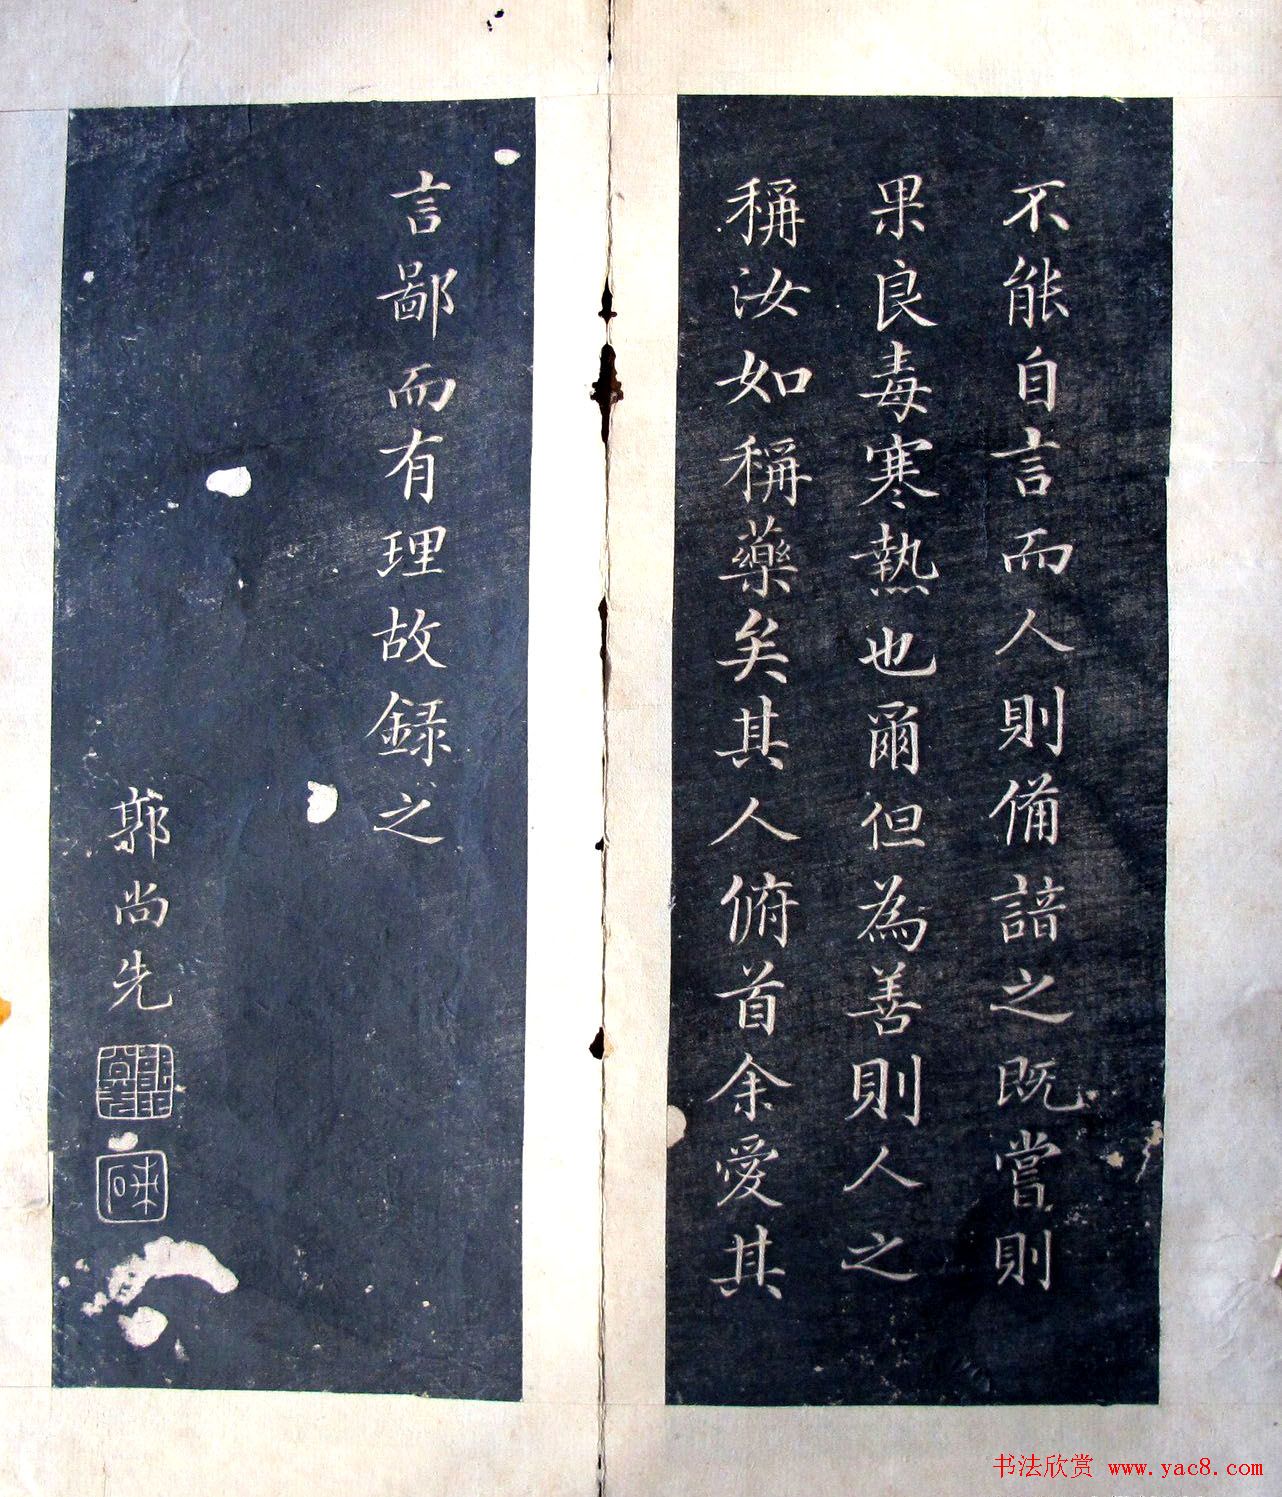 不能自言而人則備諳之既嘗則
果良毒寒熱也爾但為善則人之
稱汝如稱藥矣其人俯首余愛其
言鄙而有理故録之
郭尚先
郭尚先
书法欣赏 www.yac8.com